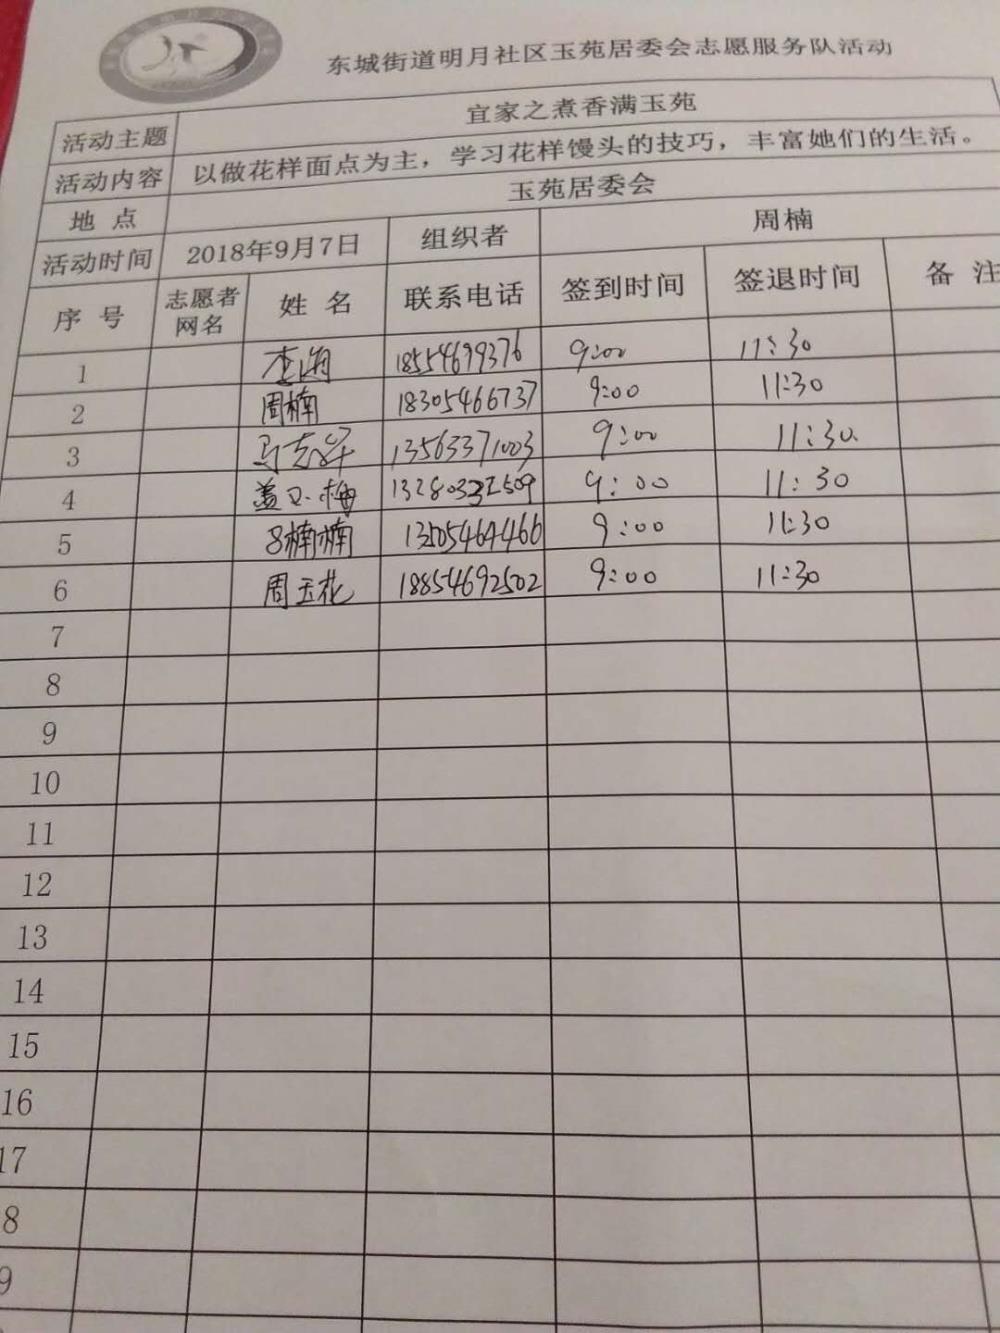 东城街道明月社区玉苑居委会志愿服务队活动
活动主题 宜家之煮香满玉苑
活动内容 以做花样面点为主，学习花样馒头的技巧，丰富她们的生活。
地 点 玉苑居委会
活动时间 2018年9月7日 组织者 周楠
序 号 志愿者网名 姓 名 联系电话 签到时间 签退时间 备 注
1 李海 18554699376 9:00 11:30
2 周楠 18305466737 9:00 11:30
3 13563371003 9:00 11:30
4 9:00 11:30
5 9:00 11:30
6 周玉花 18854692502 9:00 11:30
7
8
9
10
11
12
13
14
15
16
17
8
9